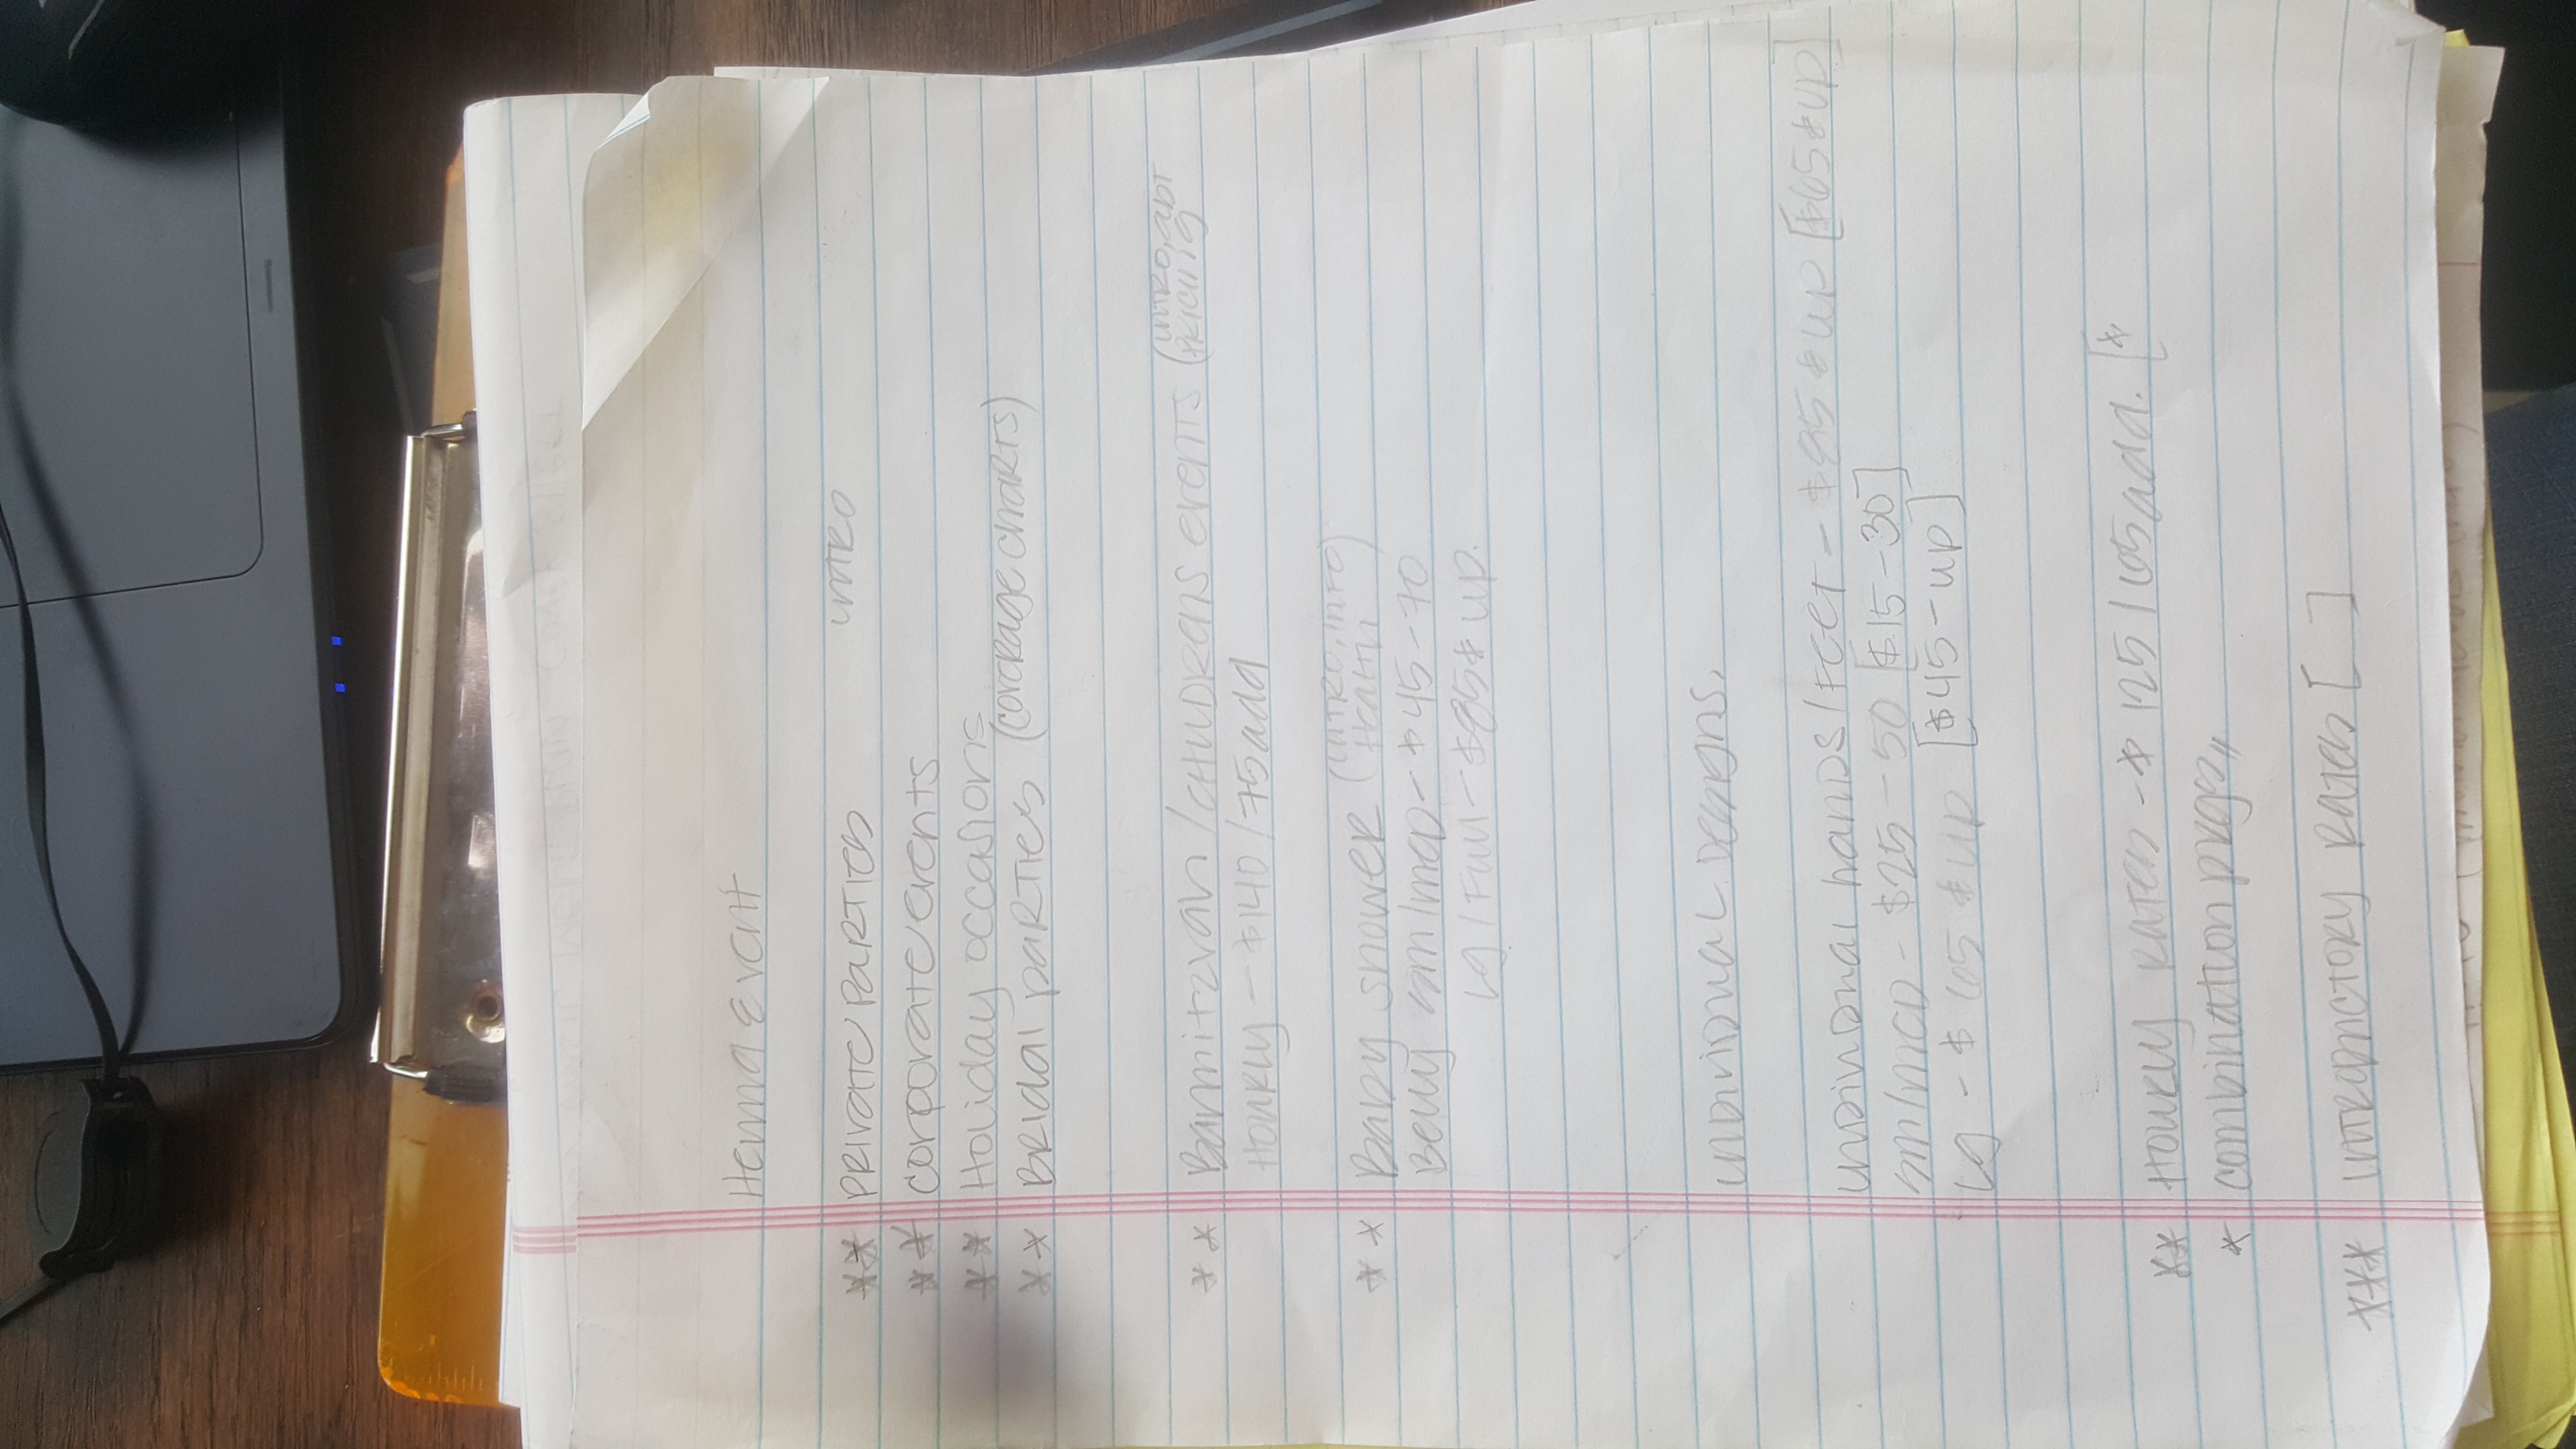 Henna Event
** Private Parties intro
** corporate events
** Holiday occasions
** Bridal parties (coverage charts)
** Barmitzvah/childrens events (intro, abt
pricing
Hourly - $140/75 add
** Baby shower (intro, info)
Health
Belly sm/med - $45-70
Lg/Full - $85 & up.
individual Designs,
individual hands/Feet - $85 & up [$65 & up]
sm/med - $25-50 [$15-30]
Lg - $65 & up [$45-up]
** Hourly Rates - $125/65 add. [$
* combination pkgs,,
*** introductory Rates [ ]